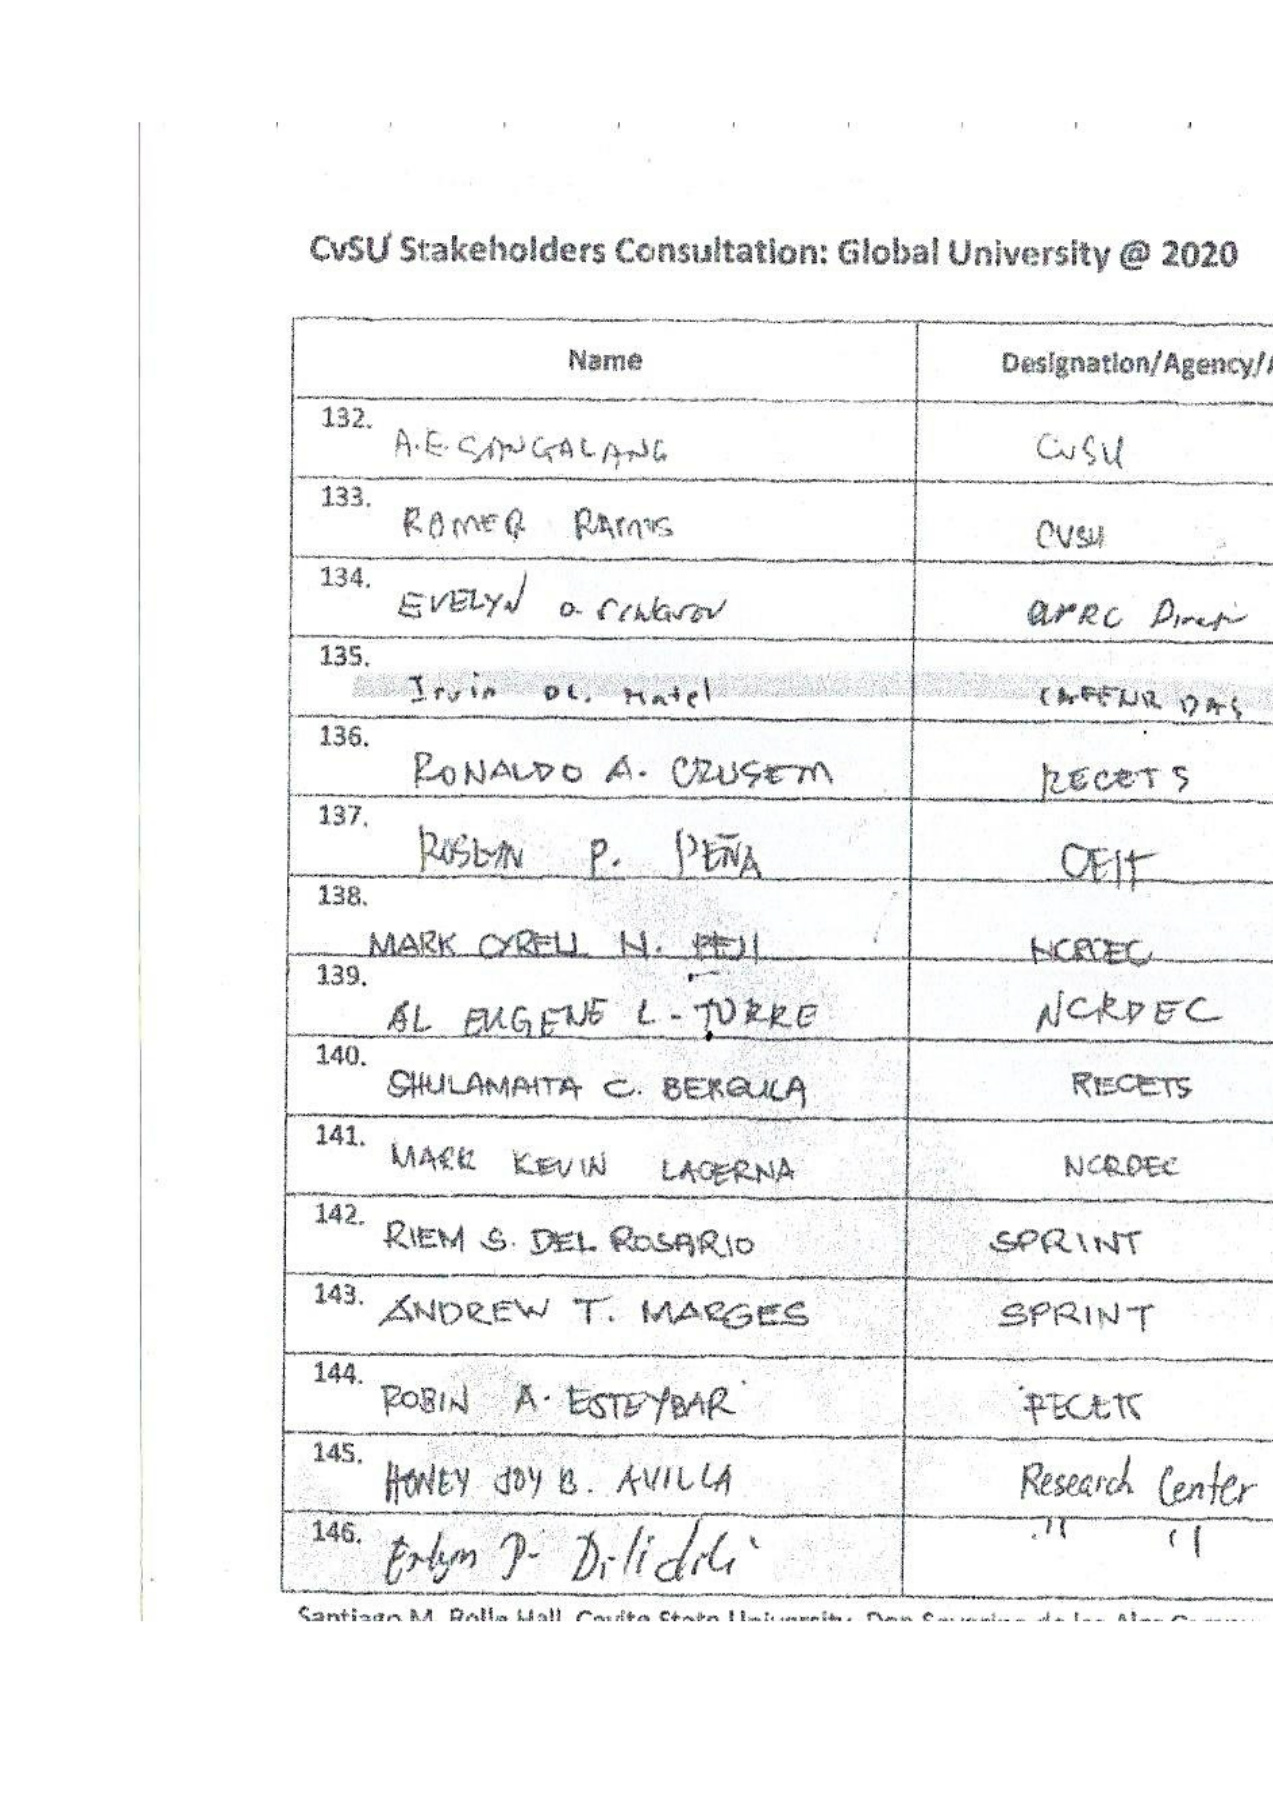 CvSU Stakeholders Consultation: Global University @ 2020
Name Designation/Agency/A
132. A.E. SANGALANG CvSU
133. ROMER RAMOS CVSU
134. EVELYN O.
135. Irvin DL. Matel CAFENR DAS
136. RONALDO A. CRUSEM RECETS
137. P. PEÑA CEIT
138. MARK CYRELL N. NCRDEC
139. AL EUGENE L. TORRE NCRDEC
140. SHULAMAITA C. BERGULA RECETS
141. MARK KEVIN LACERNA NCRDEC
142. RIEM S. DEL ROSARIO SPRINT
143. ANDREW T. MARGES SPRINT
144. ROBIN A. ESTEYBAR RECETS
145. HONEY JOY B. AVILLA Research Center
146. P. " "
Santiago M. Rolle Hall, Cavite State University, Don Severino de las Alas